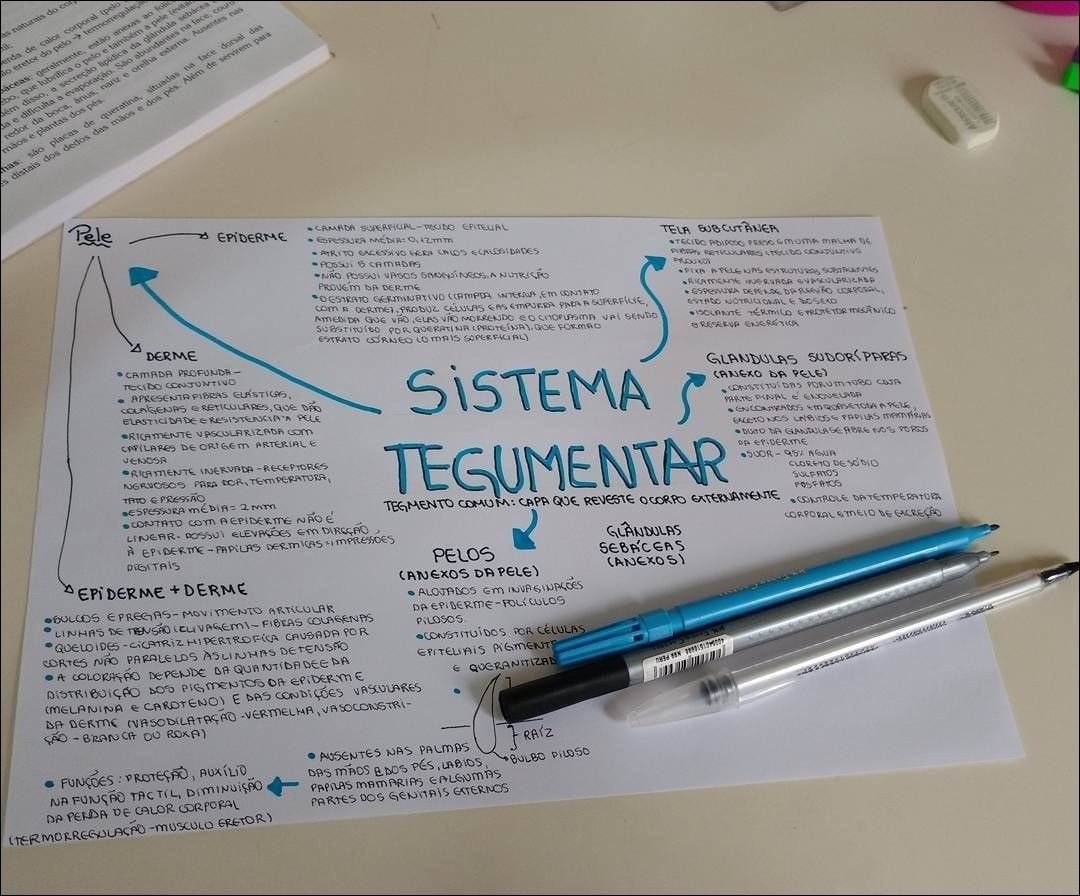 as naturais do corp
perda de calor corporal (pelo
lo eretor do pelo → termorregulação
áceas: geralmente, estão anexas ao folíc
ebo, que lubrifica o pelo e também a pele (evitan
lém disso, a secreção lipídica da glândula sebácea
da e dificulta a evaporação. São abundantes na face, couro
redor da boca, ânus, nariz e orelha externa. Ausentes nas
mãos e plantas dos pés.
has: são placas de queratina, situadas na face dorsal das
s distais dos dedos das mãos e dos pés. Além de servirem para
Pele
EPIDERME
• CAMADA SUPERFICIAL - TECIDO EPITELIAL
• ESPESSURA MÉDIA: 0,12mm
• ATRITO EXCESSIVO GERA CALOS E CALOSIDADES
• POSSUI 5 CAMADAS
• NÃO POSSUI VASOS SANGUÍNEOS, A NUTRIÇÃO
PROVÉM DA DERME
• O ESTRATO GERMINATIVO (CAMADA INTERNA, EM CONTATO
COM A DERME), PRODUZ CÉLULAS E AS EMPURRA PARA A SUPERFÍCIE,
A MEDIDA QUE VÃO, ELAS VÃO MORRENDO E O CITOPLASMA VAI SENDO
SUBSTITUÍDO POR QUERATINA (PROTEÍNA), QUE FORMAO
ESTRATO CÓRNEO (O MAIS SUPERFICIAL)
TELA SUBCUTÂNEA
• TECIDO ADIPOSO PRESO EM UMA MALHA DE
FIBRAS RETICULARES (TECIDO CONJUNTIVO
FROUXO)
• FIXA A PELE NAS ESTRUTURAS SUBJACENTES
• RICAMENTE INERVADA E VASCULARIZADA
• ESPESSURA DEPENDE DA REGIÃO CORPORAL,
ESTADO NUTRICIONAL E DO SEXO
• ISOLANTE TÉRMICO E PROTETOR MECÂNICO
E RESERVA ENERGÉTICA
DERME
• CAMADA PROFUNDA -
TECIDO CONJUNTIVO
• APRESENTA FIBRAS ELÁSTICAS,
COLÁGENAS E RETICULARES, QUE DÃO
ELASTICIDADE E RESISTENCIA A PELE
• RICAMENTE VASCULARIZADA COM
CAPILARES DE ORIGEM ARTERIAL E
VENOSA
• RICAMENTE INERVADA - RECEPTORES
NERVOSOS PARA DOR, TEMPERATURA,
TATO E PRESSÃO
• ESPESSURA MÉDIA = 2 mm
• CONTATO COM A EPIDERME NÃO É
LINEAR - POSSUI ELEVAÇÕES EM DIREÇÃO
À EPIDERME - PAPILAS DERMICAS = IMPRESSÕES
DIGITAIS
SISTEMA
TEGUMENTAR
TEGMENTO COMUM: CAPA QUE REVESTE O CORPO EXTERNAMENTE
GLANDULAS SUDORÍPARAS
(ANEXO DA PELE)
• CONSTITUÍDAS POR UM TUBO CUJA
PARTE FINAL É ENOVELADA
• ENCONTRADOS EM QUASE TODA A PELE,
EXCETO NOS LÁBIOS E PAPILAS MAMÁRIAS
• DUTO DA GLANDULA SE ABRE NOS POROS
DA EPIDERME
• SUOR - 95% AGUA
CLORETO DE SÓDIO
SULFATOS
FOSFATOS
• CONTROLE DA TEMPERATURA
CORPORAL E MEIO DE EXCREÇÃO
GLÂNDULAS
SEBÁCEAS
(ANEXOS)
PELOS
(ANEXOS DA PELE)
• ALOJADOS EM INVAGINAÇÕES
DA EPIDERME - FOLÍCULOS
PILOSOS.
• CONSTITUÍDOS POR CÉLULAS
EPITELIAIS PIGMENT
E QUERANITIZAD
} RAÍZ
BULBO PILOSO
• AUSENTES NAS PALMAS
DAS MÃOS E DOS PÉS, LABIOS,
PAPILAS MAMARIAS E ALGUMAS
PARTES DOS GENITAIS EXTERNOS
EPIDERME + DERME
• SULCOS E PREGAS - MOVIMENTO ARTICULAR
• LINHAS DE TENSÃO (CLIVAGEM) - FIBRAS COLAGENAS
• QUELOIDES - CICATRIZ HIPERTROFICA CAUSADA POR
CORTES NÃO PARALELOS ÀS LINHAS DE TENSÃO
• A COLORAÇÃO DEPENDE DA QUANTIDADE E DA
DISTRIBUIÇÃO DOS PIGMENTOS DA EPIDERME
(MELANINA E CAROTENO) E DAS CONDIÇÕES VASCULARES
DA DERME (VASODILATAÇÃO - VERMELHA, VASOCONSTRI-
ÇÃO - BRANCA OU ROXA)
• FUNÇÕES: PROTEÇÃO, AUXÍLIO
NA FUNÇÃO TACTIL, DIMINUIÇÃO
DA PERDA DE CALOR CORPORAL
(TERMORREGULAÇÃO - MUSCULO ERETOR)